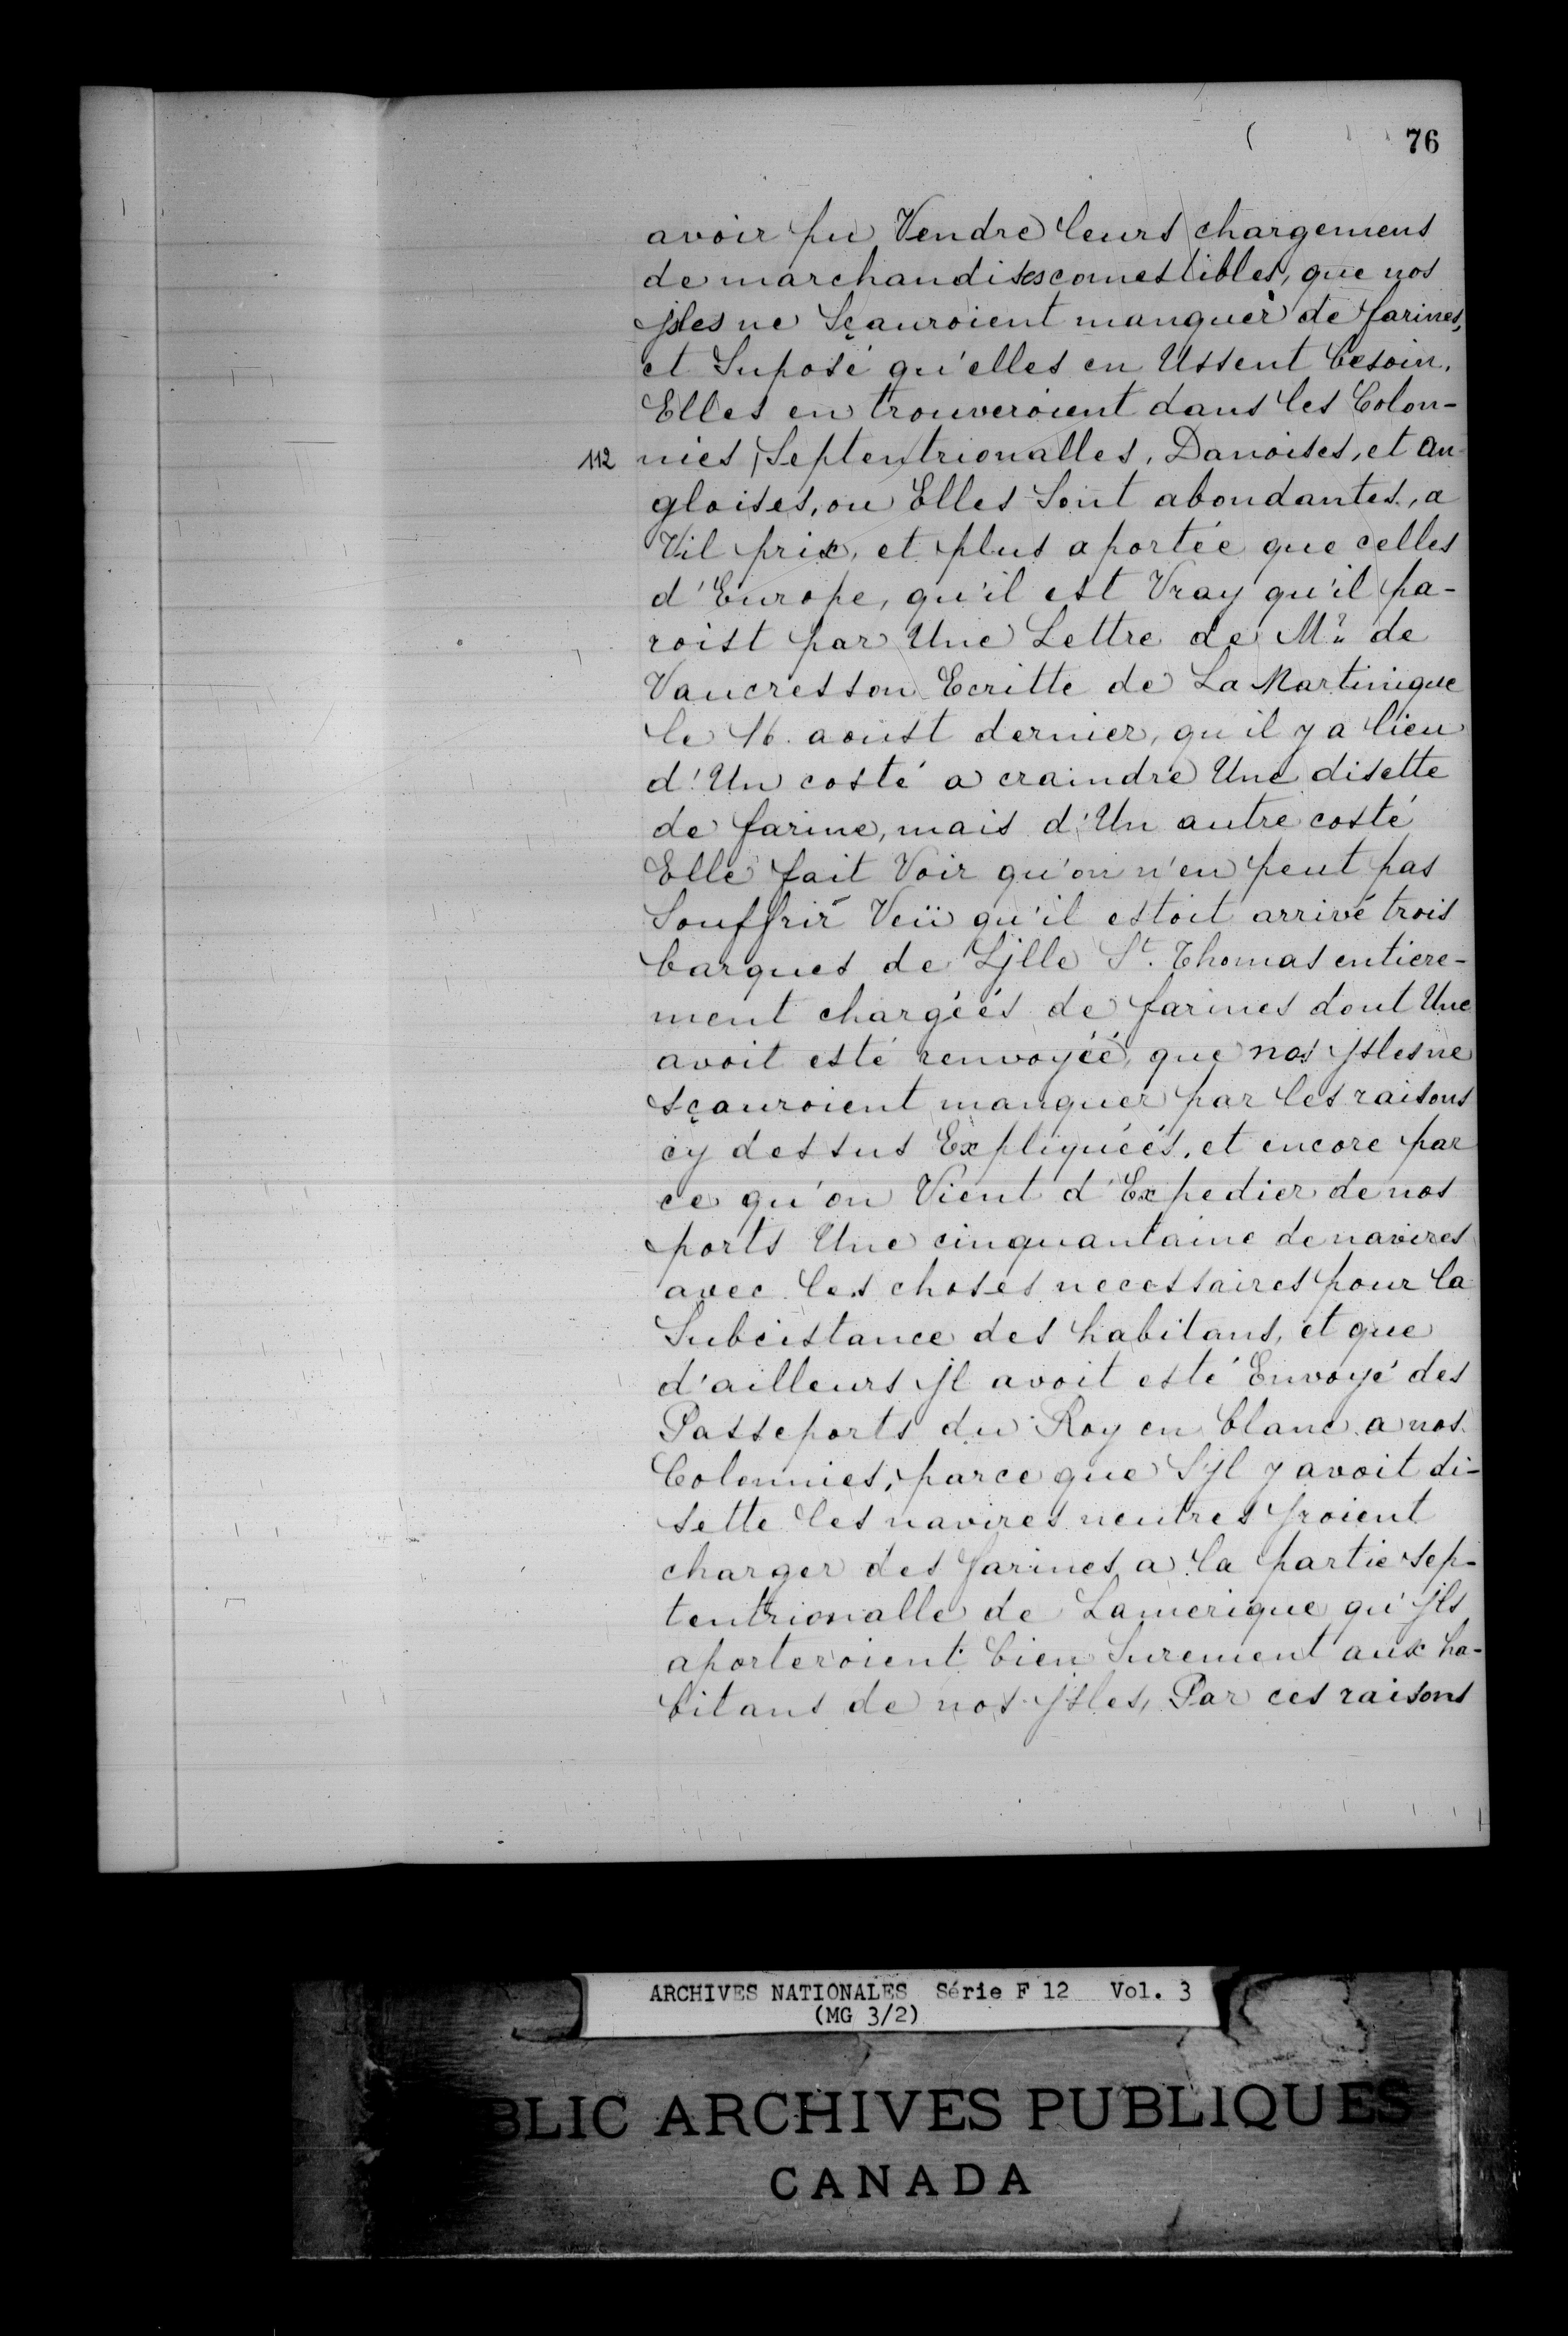 76
avoir pu Vendre leurs chargemens
de marchandises comestibles, que nos
jsles ne Sçauroient manquer de farines,
et Suposé qu'elles en Ussent besoin.
Elles en trouveroient dans les Colon-
112 nies Septentrionalles, Danoises, et An-
gloises, ou Elles Sont abondantes, a
Vil prix, et plus a portée que celles
d'Europe, qu'il est Vray qu'il pa-
roist par Une Lettre de Mr. de
Vaucresson Ecritte de La Martinique
le 16. aoust dernier, qu'il y a lieu
d'Un costé a craindre Une disette
de farine, mais d'Un autre costé
Elle fait Voir qu'on n'en peut pas
Souffrir Veü qu'il estoit arrivé trois
barques de Ljlle St. Thomas entiere-
ment chargéés de farines dont Une
avoit esté renvoyéé, que nos jsles ne
sçauroient manquer par les raisons
cy dessus Expliquéés, et encore par
ce qu'on Vient d'Expedier de nos
ports Une cinquantaine de navires
avec les choses necessaires pour la
Subcistance des habitans, et que
d'ailleurs jl avoit esté Envoyé des
Passeports du Roy en blanc a nos
Colonnies, parce que S'jl y avoit di-
sette les navires neutres jroient
charger des farines a la partie sep-
tentrionalle de Lamerique qu'jls
aporteroient bien Surement aux ha-
bitans de nos jsles, Par ces raisons
ARCHIVES NATIONALES Série F 12 Vol. 3
(MG 3/2)
BLIC ARCHIVES PUBLIQUES
CANADA